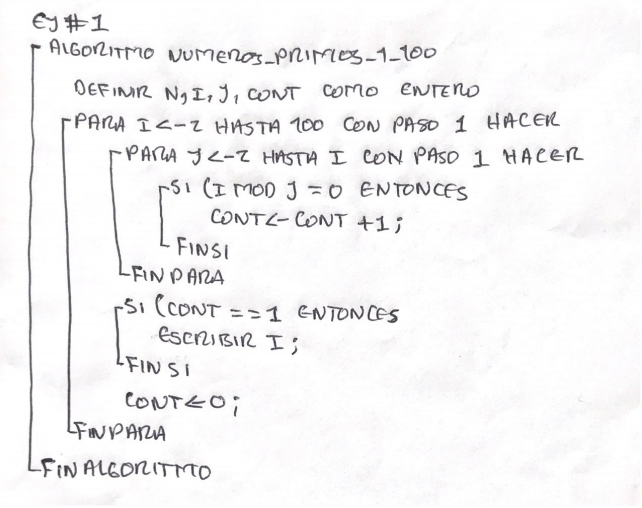 EJ #1
ALGORITMO NUMEROS_PRIMOS_1_100
DEFINIR N, I, J, CONT COMO ENTERO
PARA I<-2 HASTA 100 CON PASO 1 HACER
PARA J<-2 HASTA I CON PASO 1 HACER
SI (I MOD J = 0 ENTONCES
CONT<-CONT +1;
FINSI
FINPARA
SI (CONT == 1 ENTONCES
ESCRIBIR I;
FINSI
CONT<0;
FINPARA
FINALGORITMO